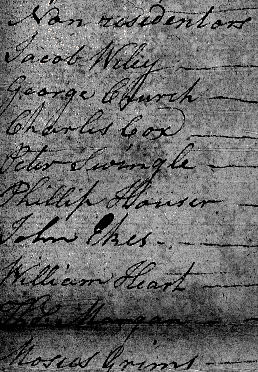 Non residentors
Jacob Wiley
George Church
Charles Cox
Peter Swingle
Phillip Houser
John Ekes
William Heart
Morgan
Moses Grims